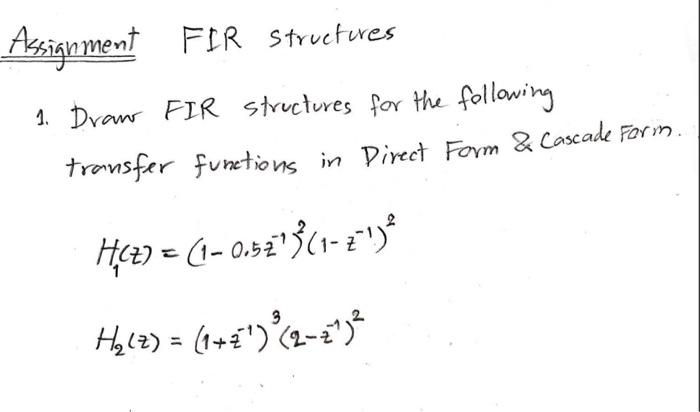 Assignment FIR structures
1. Draw FIR structures for the following
transfer functions in Direct Form & Cascade Form.
H₁(z) = (1 - 0.5z⁻¹)²(1 - z⁻¹)²
H₂(z) = (1+z⁻¹)³(2-z⁻¹)²